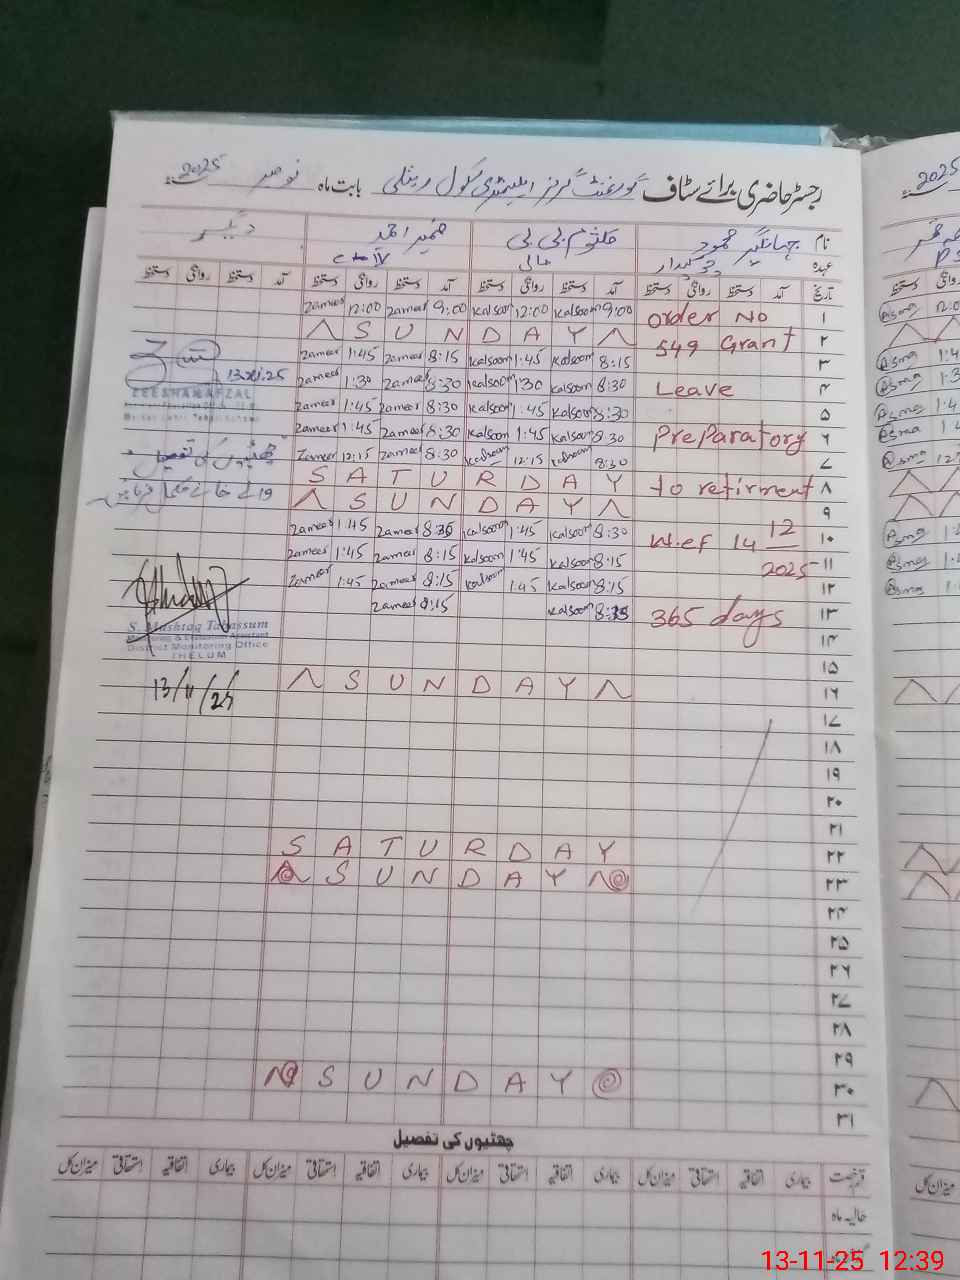 رجسٹر حاضری برائے سٹاف گورنمنٹ گرلز ایلیمنٹری سکول بابت ماہ نومبر 2025
نام جہانگیر محمود کلثوم بی بی ضمیر احمد دیگر
عہدہ چوکیدار مالی
تاریخ آمد دستخط روانگی دستخط آمد دستخط روانگی دستخط آمد دستخط روانگی دستخط آمد دستخط روانگی دستخط
۱ order No 9:00 Kalsoom 12:00 Kalsoom 9:00 zameer 12:00 zameer
۲ S U N D A Y
549 Grant
۳ 8:15 Kalsoom 1:45 Kalsoom 8:15 zameer 1:45 zameer
۴ Leave 8:30 Kalsoom 1:30 Kalsoom 8:30 zameer 1:30 zameer
13.XI.25
ZEESHAN AFZAL
۵ 8:30 Kalsoom 1:45 Kalsoom 8:30 zameer 1:45 zameer
۶ Preparatory 8:30 Kalsoom 1:45 Kalsoom 8:30 zameer 1:45 zameer
۷ 8:30 Kalsoom 12:15 Kalsoom 8:30 zameer 12:15 Zameer
چھٹیوں کی تفصیل
۸ to retirment S A T U R D A Y
والے خانے مکمل فرمائیں
۹ S U N D A Y
۱۰ W.ef 14 12 8:30 Kalsoom 1:45 Kalsoom 8:30 zameer 1:45 zameer
۱۱ 2025 8:15 Kalsoom 1:45 Kalsoom 8:15 zameer 1:45 zameer
۱۲ 8:15 Kalsoom 1:45 Kalsoom 8:15 zameer 1:45 zameer
۱۳ 365 days 8:15 Kalsoom 8:15 zameer
S. Mushtaq Tabassum
Monitoring & Evaluation Assistant
District Monitoring Office
JHELUM
13/11/25
۱۴
۱۵
۱۶ S U N D A Y
۱۷
۱۸
۱۹
۲۰
۲۱
۲۲ S A T U R D A Y
۲۳ S U N D A Y
۲۴
۲۵
۲۶
۲۷
۲۸
۲۹
۳۰ S U N D A Y
۳۱
چھٹیوں کی تفصیل
قسم رخصت بیماری اتفاقیہ استحقاقی میزان کل بیماری اتفاقیہ استحقاقی میزان کل بیماری اتفاقیہ استحقاقی میزان کل بیماری اتفاقیہ استحقاقی میزان کل
حالیہ ماہ
2025
Asma 12:0
Asma 1:4
Asma 1:3
Asma 1:4
Asma 1:4
Asma 12:
Asma 1:4
Asma 1:
Asma 1:
میزان کل
13-11-25 12:39